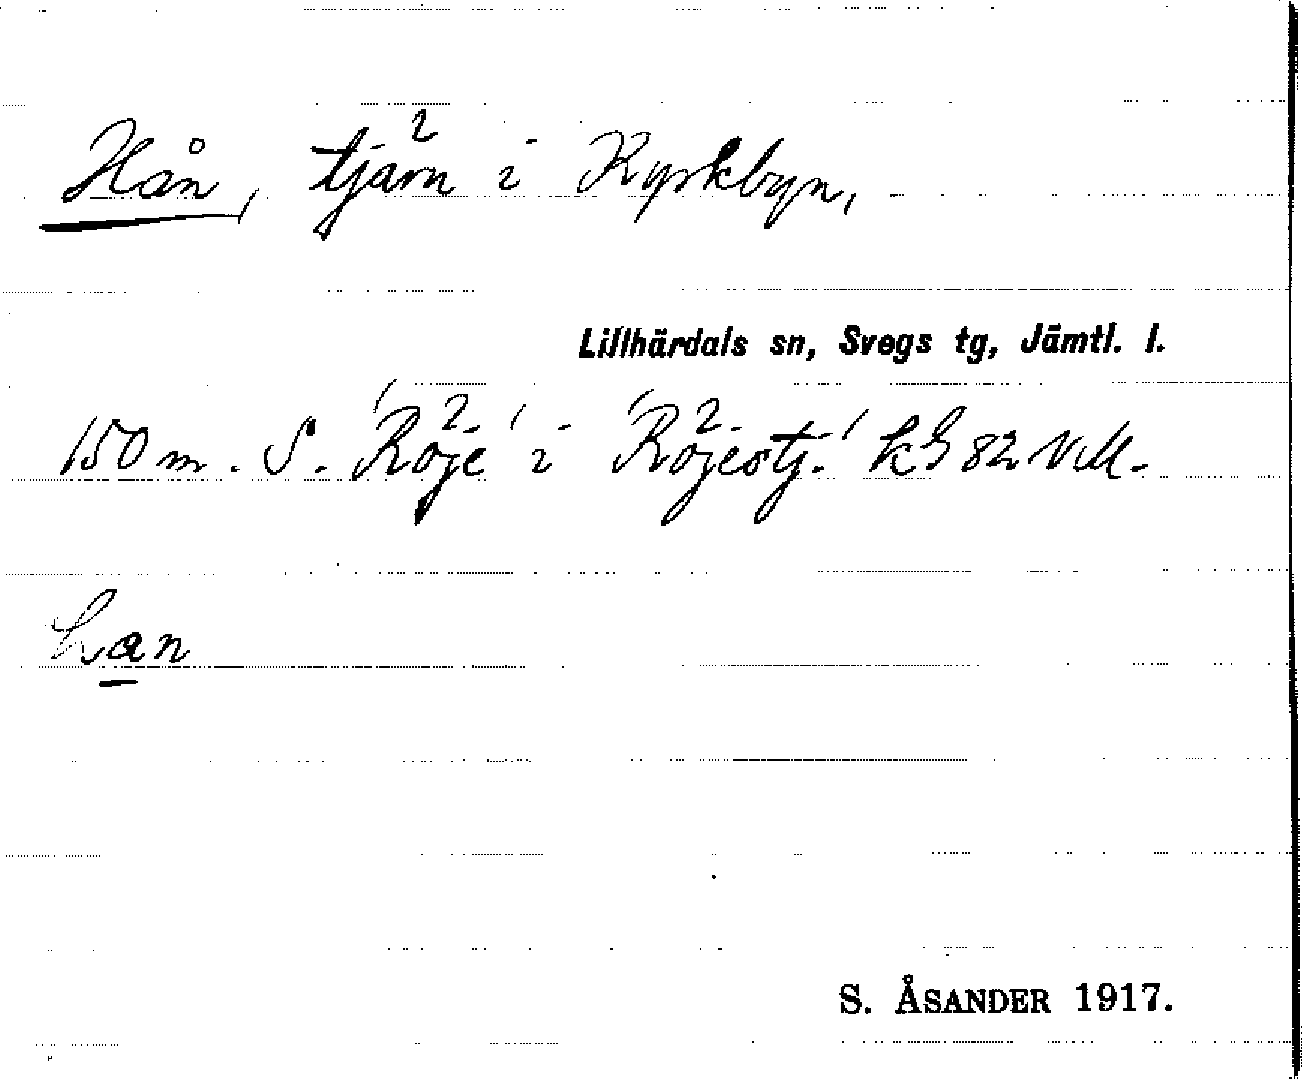 Hån, tjärn i Kyrkbyn,
Lillhärdals sn, Svegs tg, Jämtl. l.
150 m. S. 'Röje' i 'Röjestj.' k G 82 V.M.
han
S. ÅSANDER 1917.